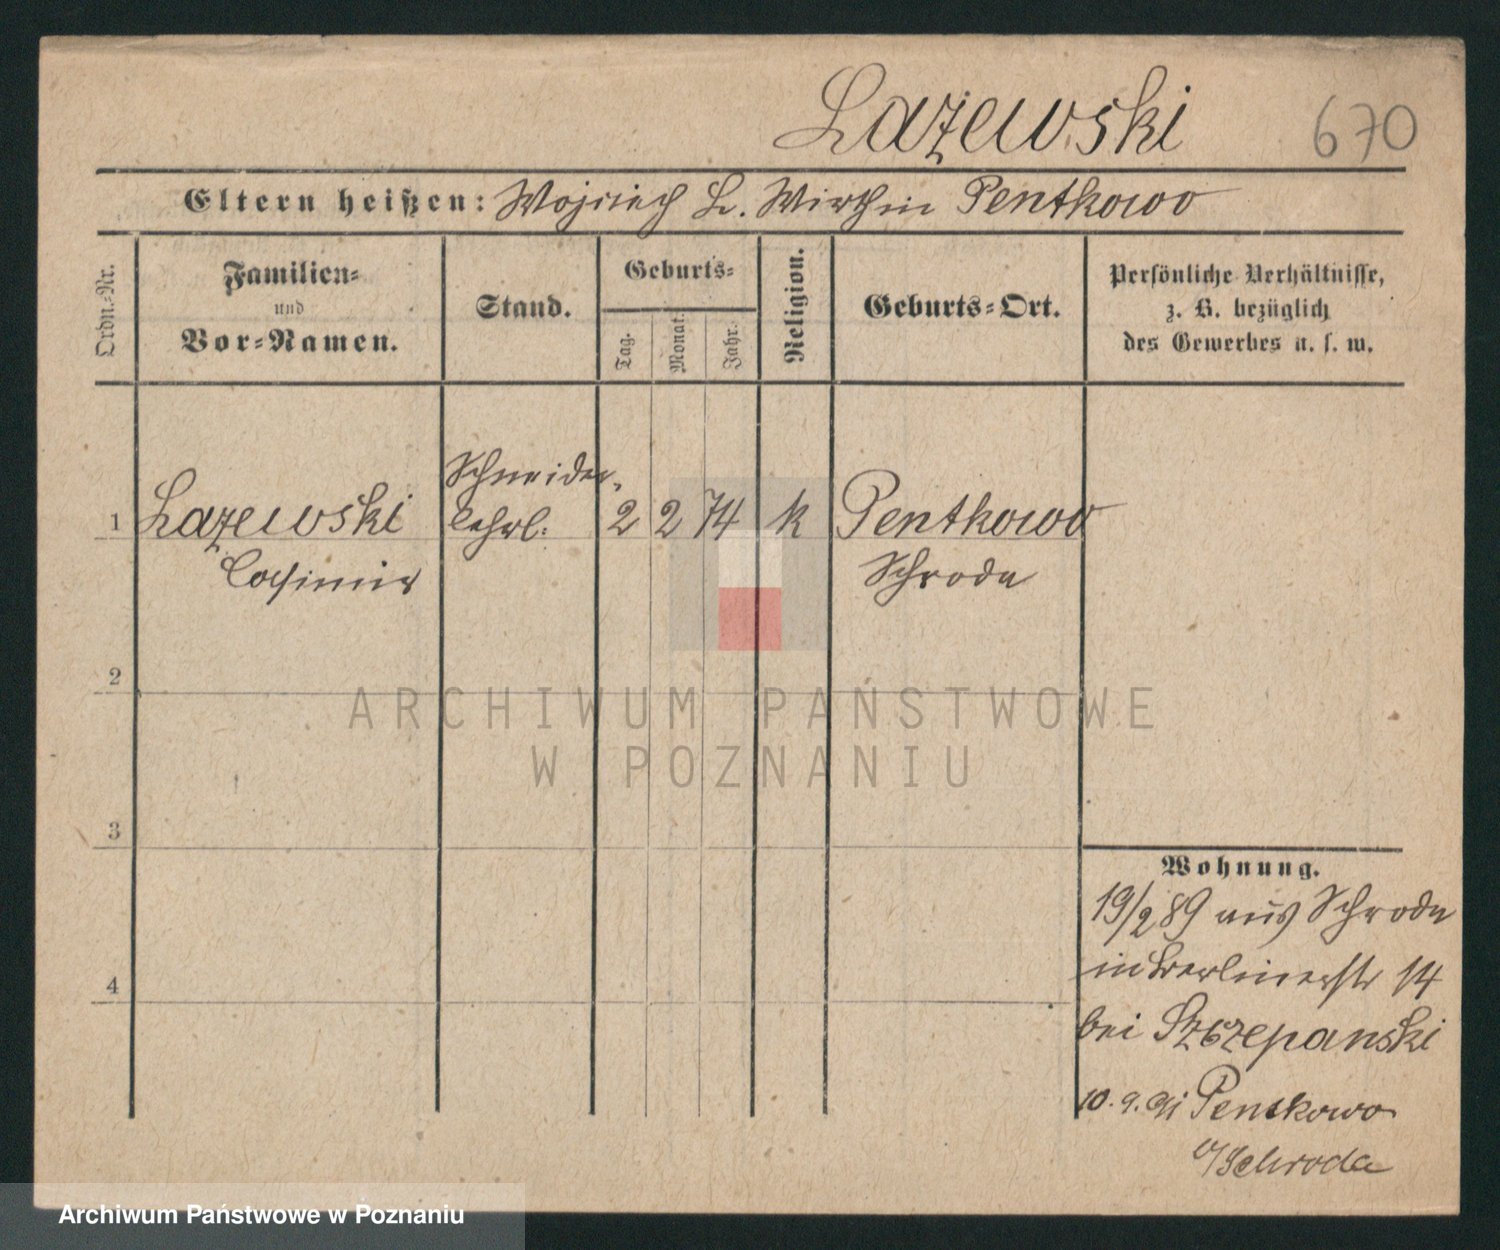 Lazewski 670
Eltern heißen: Wojciech L. Wirth in Pentkowo
Ordn.-Nr.
Familien-
und
Vor-Namen.
Stand.
Geburts-
Tag.
Monat.
Jahr.
Religion.
Geburts-Ort.
Persönliche Verhältnisse,
z. B. bezüglich
des Gewerbes u. s. w.
1 Lazewski
Casimir
Schneider-
lehrl.
2 2 74 k Pentkowo
Schroda
2
3
4
Wohnung.
19/2 89 aus Schroda
in Berlinerstr 14
bei Szczepanski
10.9.91 Pentkowo
b/Schroda
ARCHIWUM PAŃSTWOWE
W POZNANIU
Archiwum Państwowe w Poznaniu